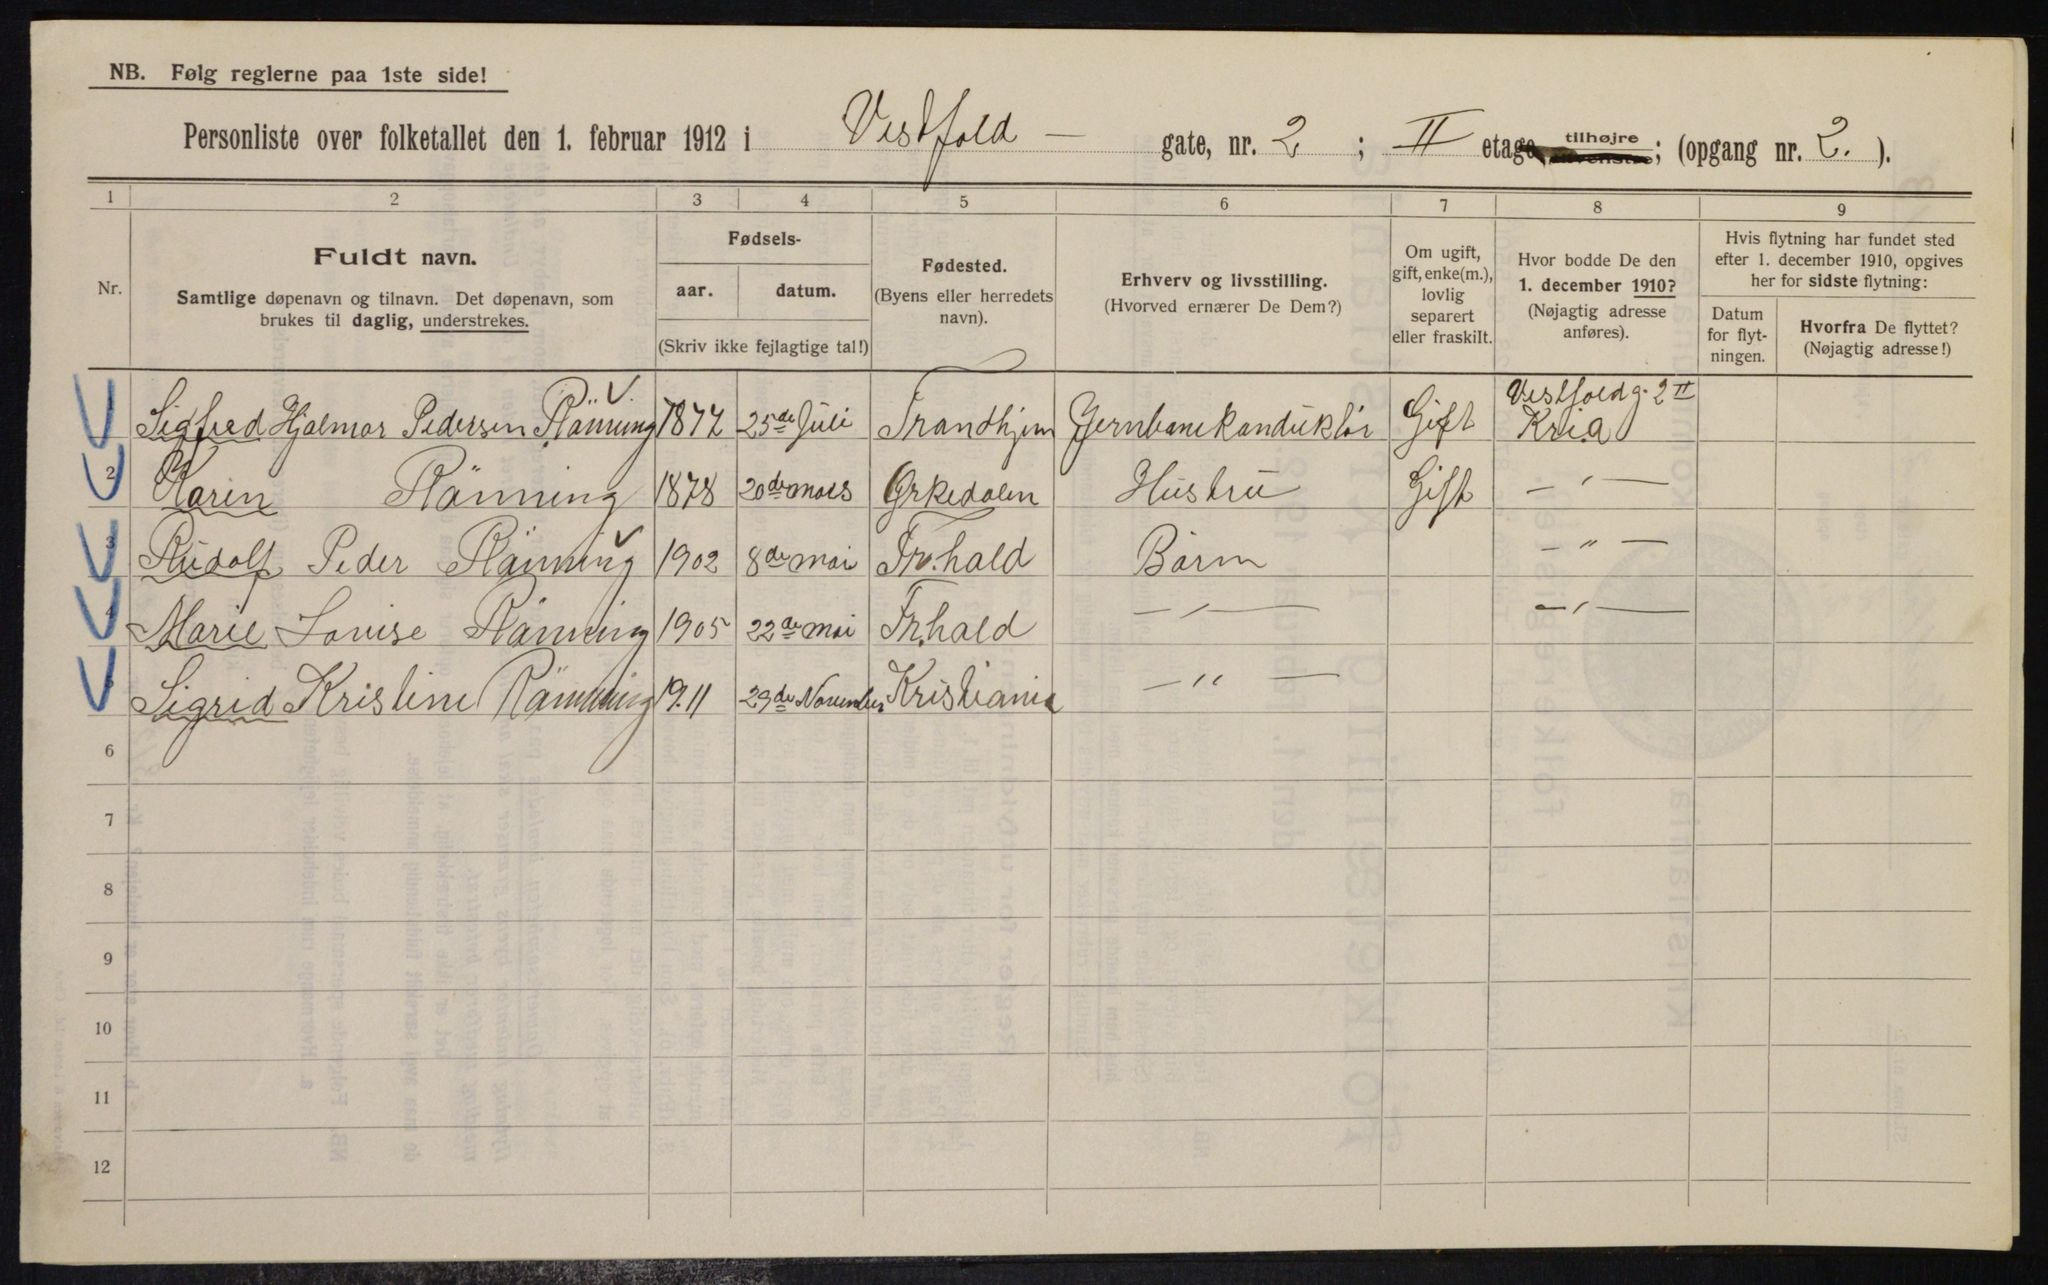 NB. Følg reglerne paa 1ste side!
Personliste over folketallet den 1. februar 1912 i Vestfold — gate, nr. 2 ; II etage, tilhøjre ; (opgang nr. 2. ).
1 2 3 4 5 6 7 8 9
Nr.
Fuldt navn.
Samtlige døpenavn og tilnavn. Det døpenavn, som
brukes til daglig, understrekes.
Fødsels-
aar. datum.
(Skriv ikke fejlagtige tal!)
Fødested.
(Byens eller herredets
navn).
Erhverv og livsstilling.
(Hvorved ernærer De Dem?)
Om ugift,
gift, enke(m.),
lovlig
separert
eller fraskilt.
Hvor bodde De den
1. december 1910?
(Nøjagtig adresse
anføres).
Hvis flytning har fundet sted
efter 1. december 1910, opgives
her for sidste flytning:
Datum
for flyt-
ningen.
Hvorfra De flyttet?
(Nøjagtig adresse!)
Sigfred Hjalmar Pedersen Rönning 1877 25de Juli Trondhjem Jernbanekonduktör Gift Vestfoldg. 2 II Kria
2 Karin Rönning 1878 20de mars Orkedalen Hustru Gift — " —
3 Rudolf Peder Rönning 1902 8de mai Fr.hald Barn — " —
4 Marie Louise Rönning 1905 22de mai Fr.hald — " — — " —
5 Sigrid Kristine Rönning 1911 29de November Kristiania — " —
6
7
8
9
10
11
12